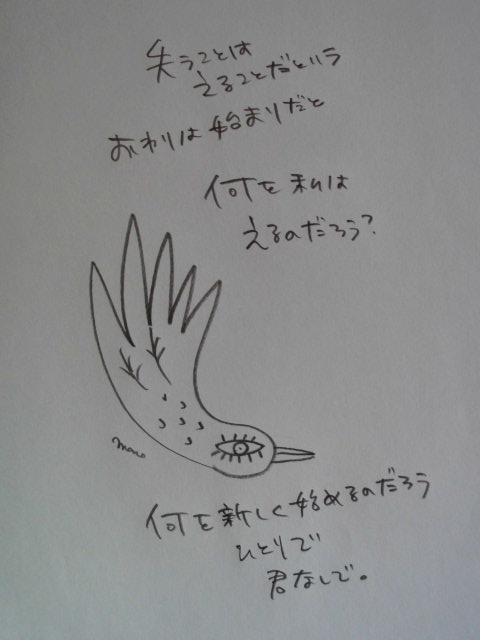 失うことは
えることだという
おわりは始まりだと
何を私は
えるのだろう?
mano
何を新しく始めるのだろう
ひとりで
君なしで。